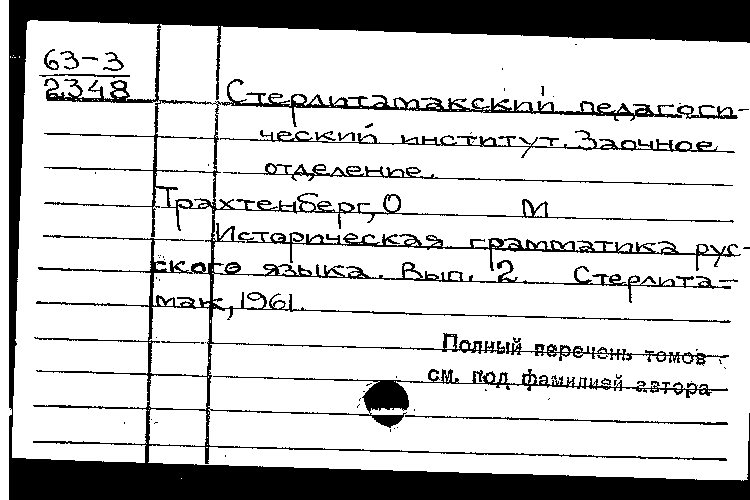 63-3
2348
Стерлитамакский педагоги-
ческий институт. Заочное
отделение.
Трахтенберг, О М
Историческая грамматика рус-
ского языка. Вып. 2. Стерлита-
мак, 1961.
Полный перечень томов
см. под фамилией автора